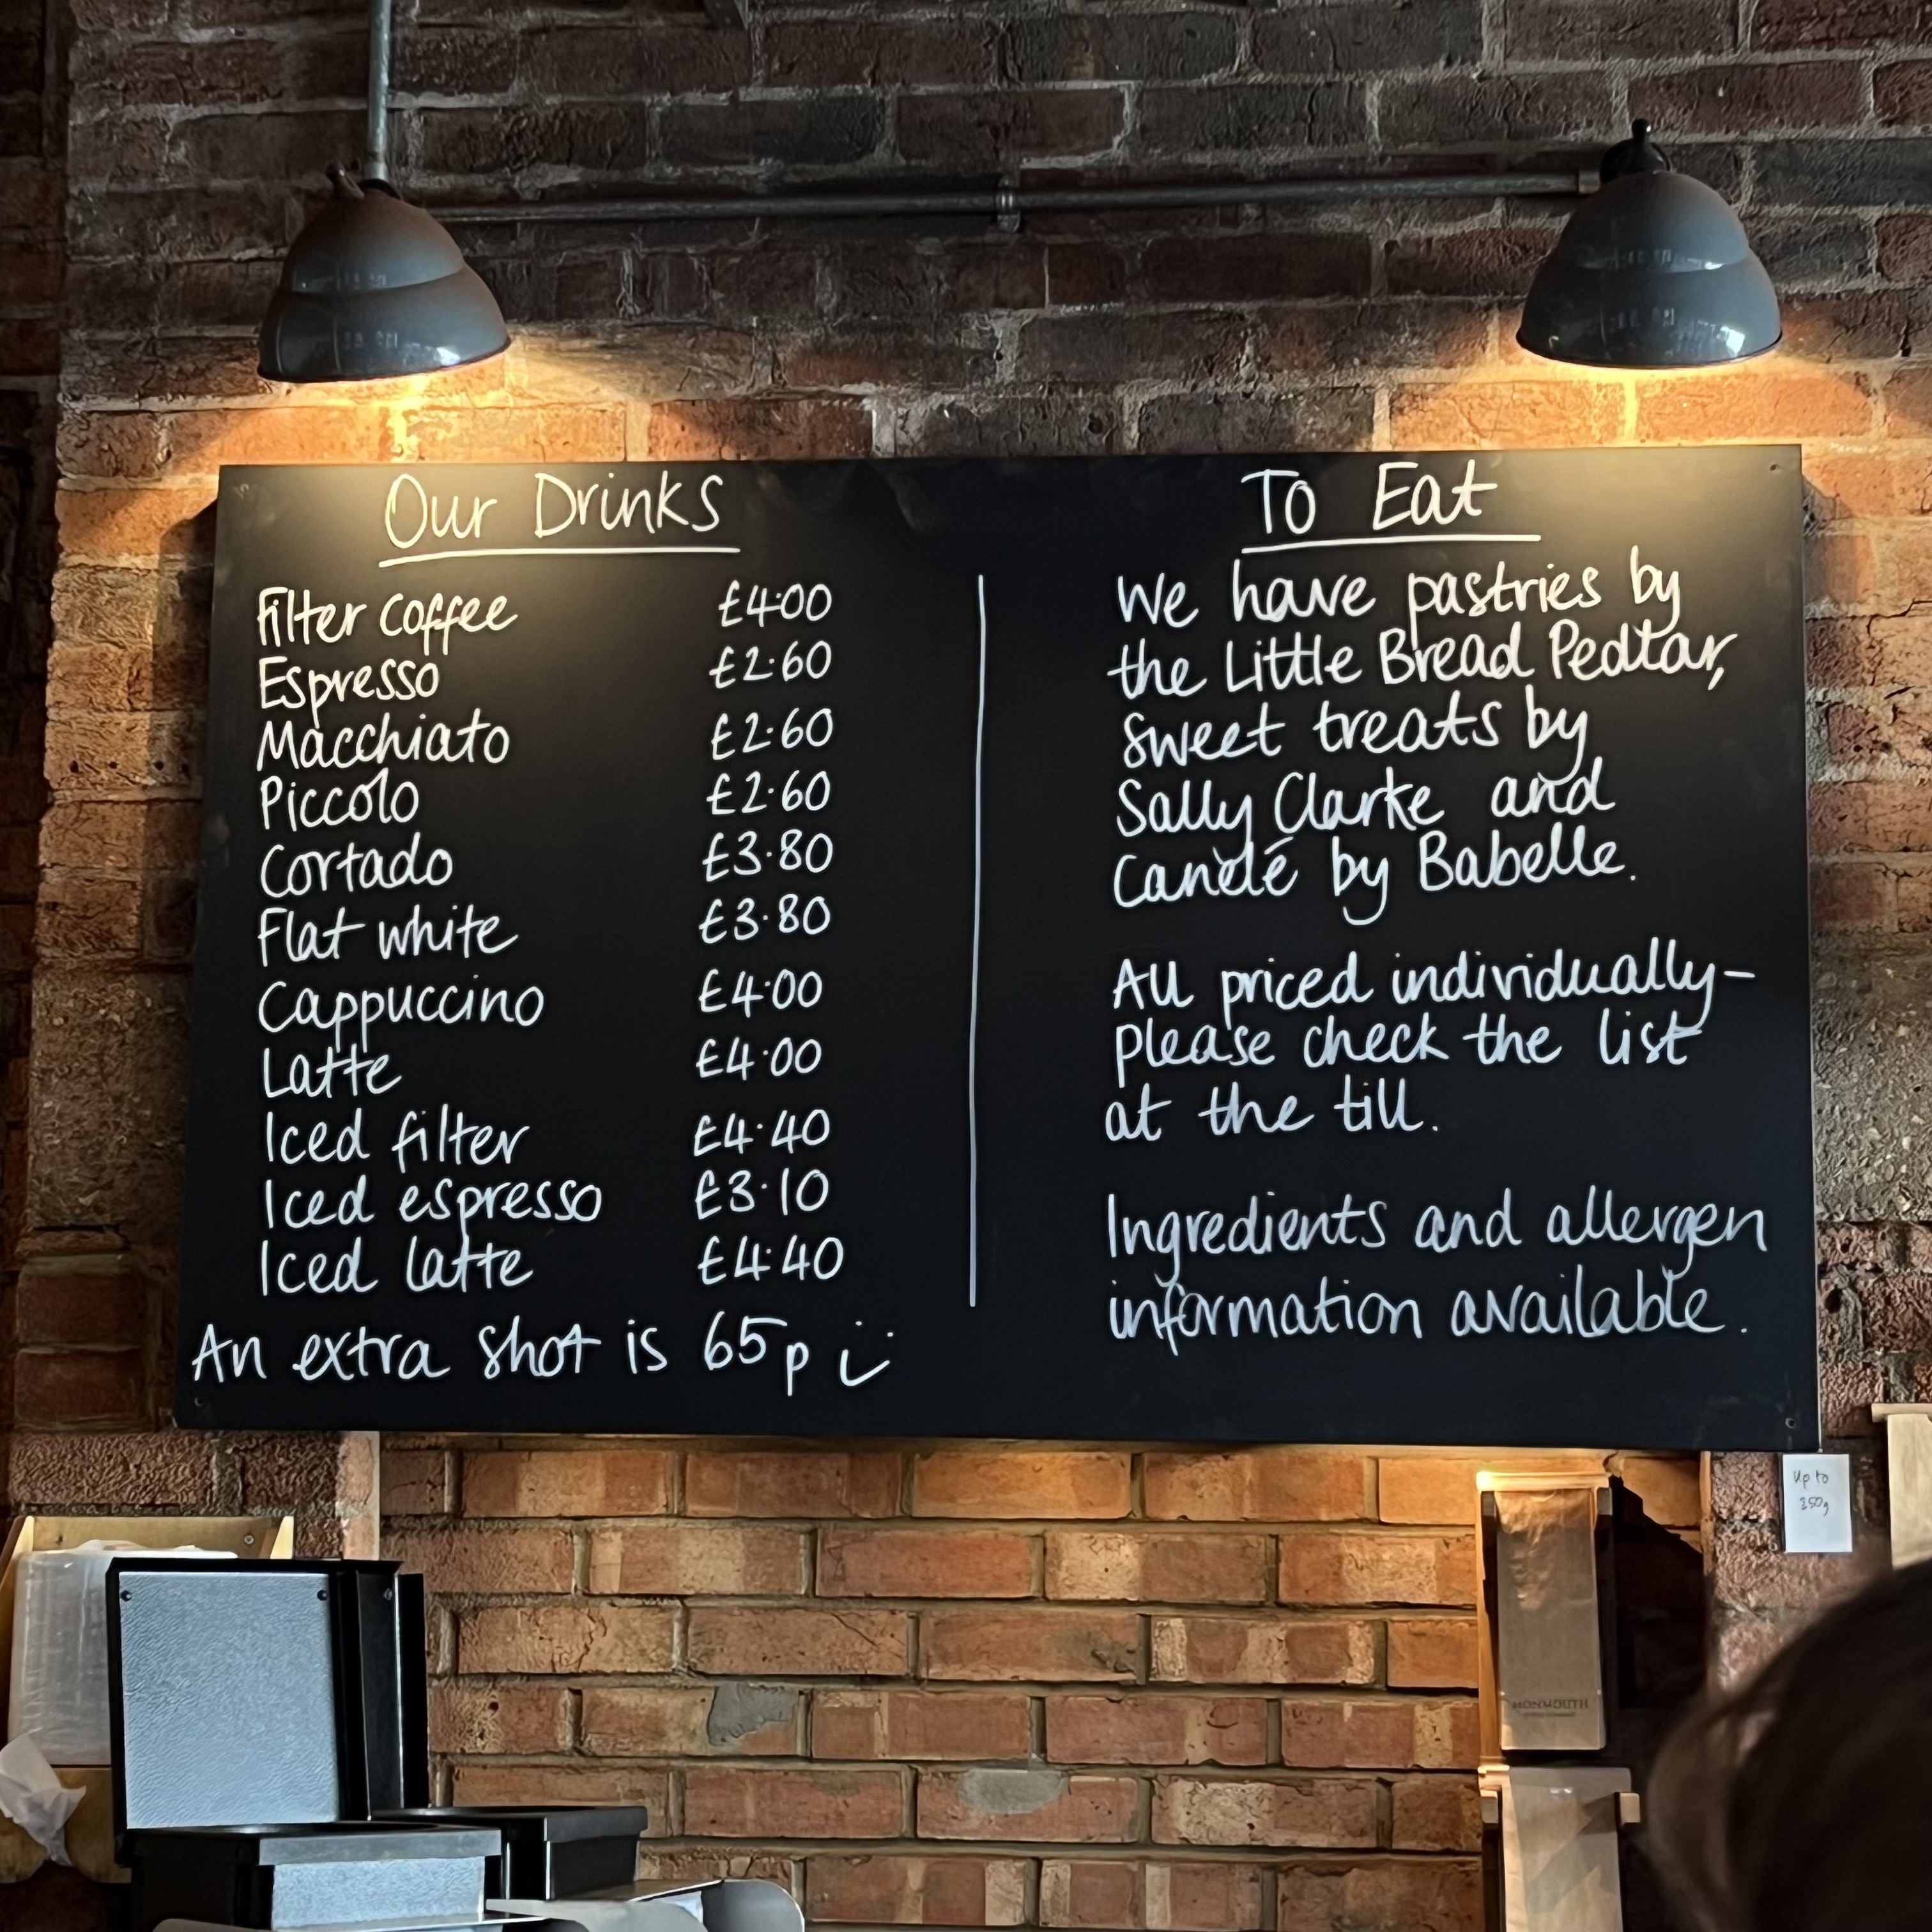 Our Drinks
Filter coffee £4.00
Espresso £2.60
Macchiato £2.60
Piccolo £2.60
Cortado £3.80
Flat white £3.80
Cappuccino £4.00
Latte £4.00
Iced filter £4.40
Iced espresso £3.10
Iced latte £4.40
An extra shot is 65p
To Eat
We have pastries by
the Little Bread Pedlar,
sweet treats by
Sally Clarke and
Candé by Babelle.
All priced individually-
please check the list
at the till.
Ingredients and allergen
information available.
Up to
250g
MONMOUTH